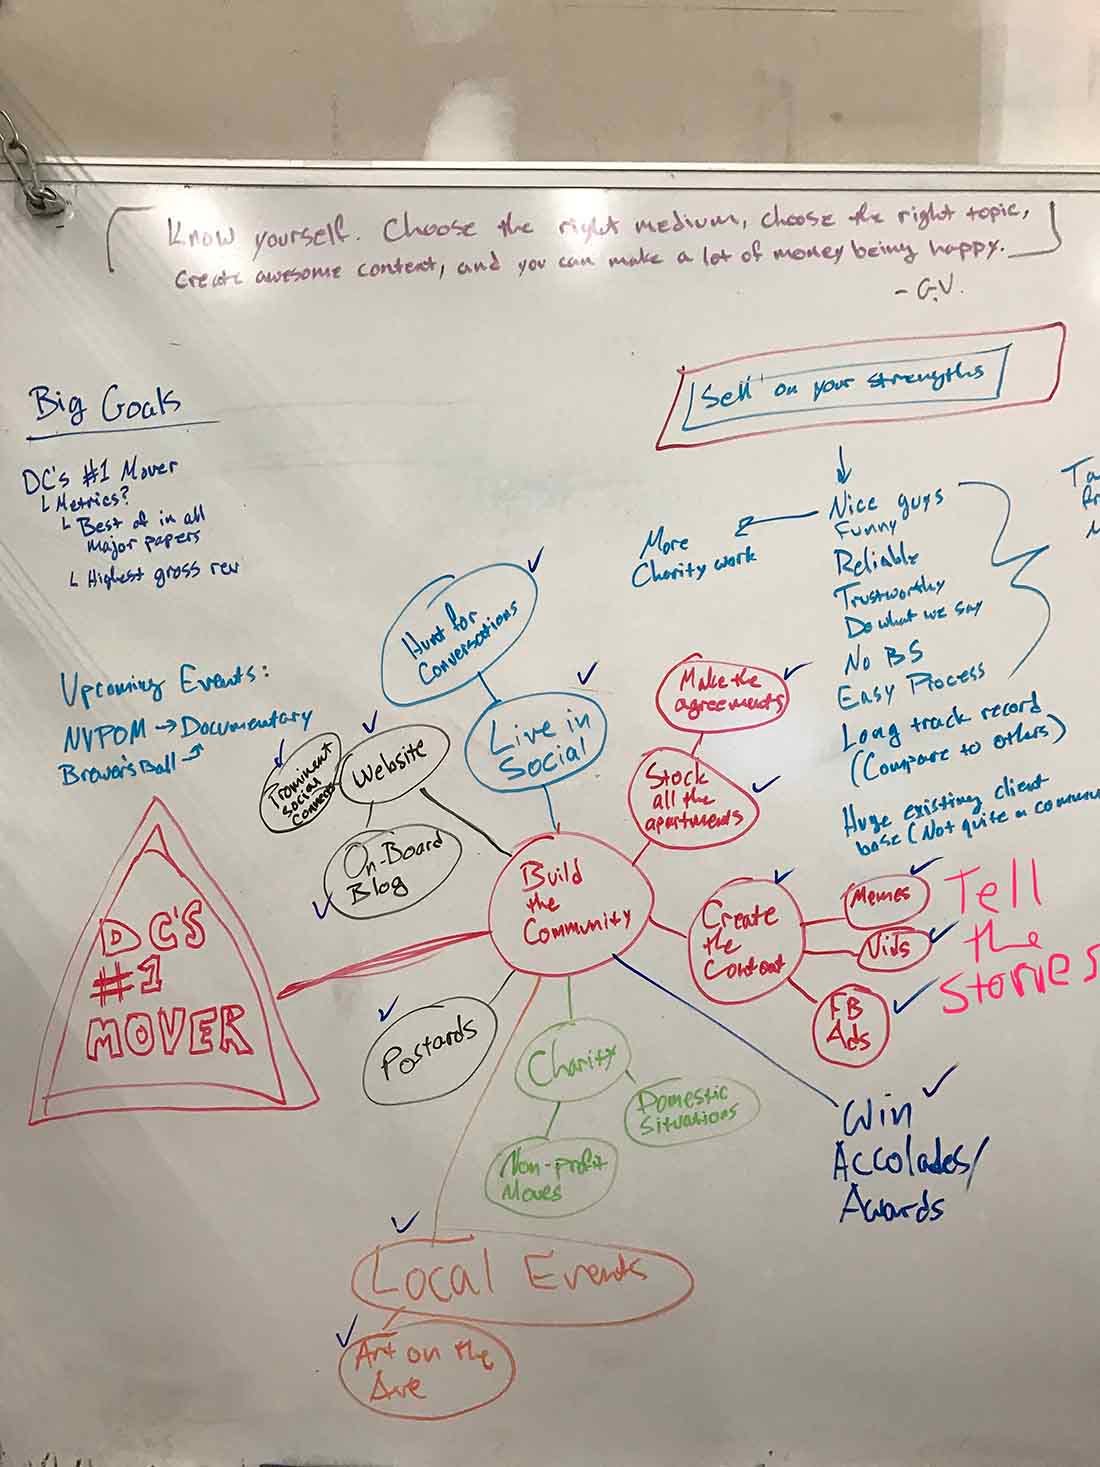 Know yourself. Choose the right medium, choose the right topic,
create awesome content, and you can make a lot of money being happy.
- G.V.
Big Goals
DC's #1 Mover
Metrics?
Best of in all
Major papers
Highest gross rev
Upcoming Events:
NVPOM → Documentary
Brewer's Ball
Sell on your strengths
Nice guys
Funny
Reliable
Trustworthy
Do what we say
No BS
Easy Process
Long track record
(Compare to others)
Huge existing client
base (Not quite a commun
More
Charity work
Ta
Hunt for
Conversations
Live in
Social
Website
Prominent
Social
On-Board
Blog
Make the
agreements
Stock
all the
apartments
Build
the
Community
Create
the
Content
Memes
Vids
FB
Ads
Tell
the
Stories
DC'S
#1
MOVER
Postards
Charity
Domestic
Situations
Non-profit
Moves
Win
Accolades/
Awards
Local Events
Art on the
Ave